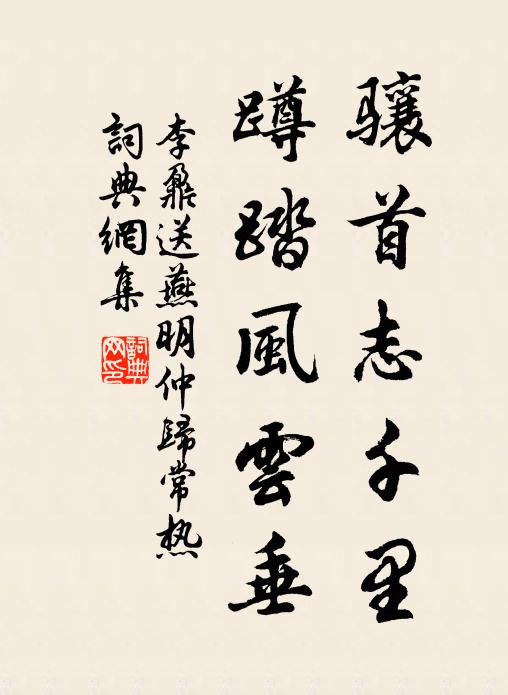 骧首志千里
蹲踏風雲垂
李鼐送燕明仲歸常热
詞典網集
詞典网印